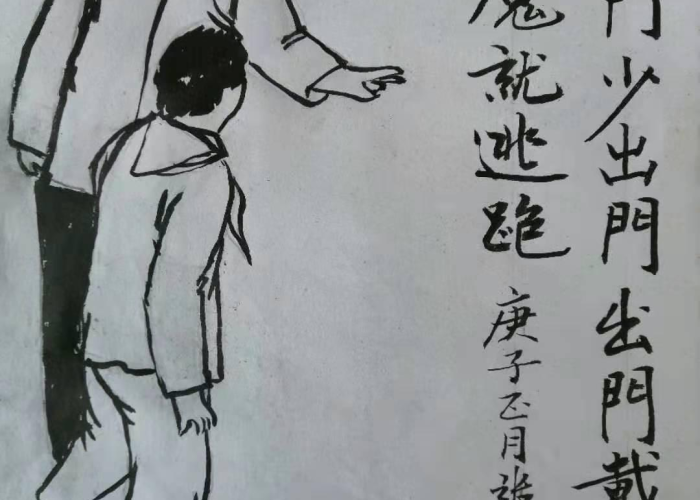 門少出門出門戴
就逃跑
庚子正月張